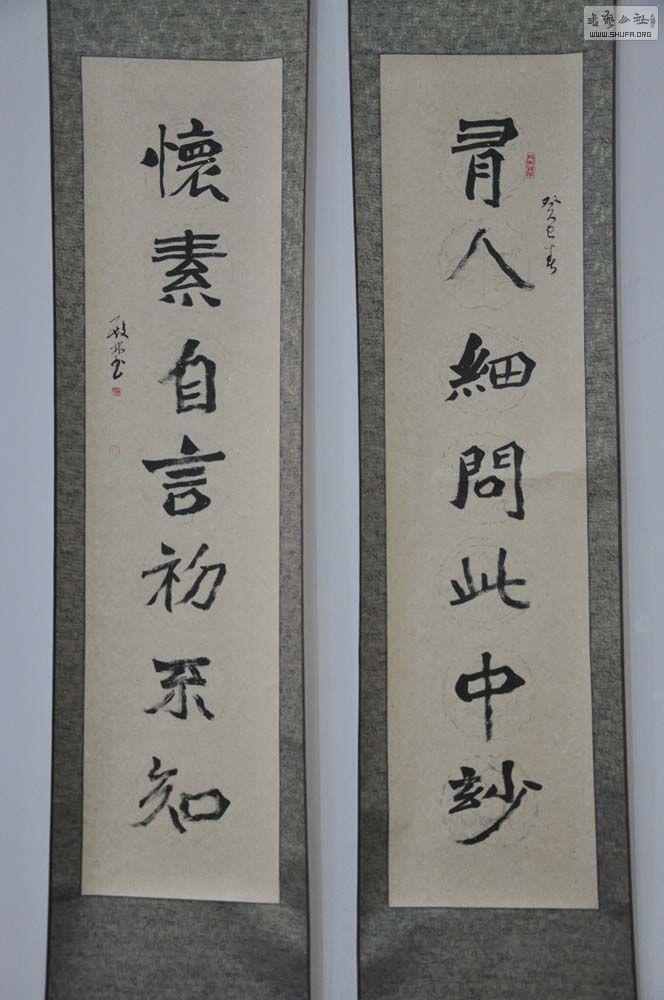 書藝公社
WWW.SHUFA.ORG
癸巳春
有人細問此中玅
懷素自言初不知